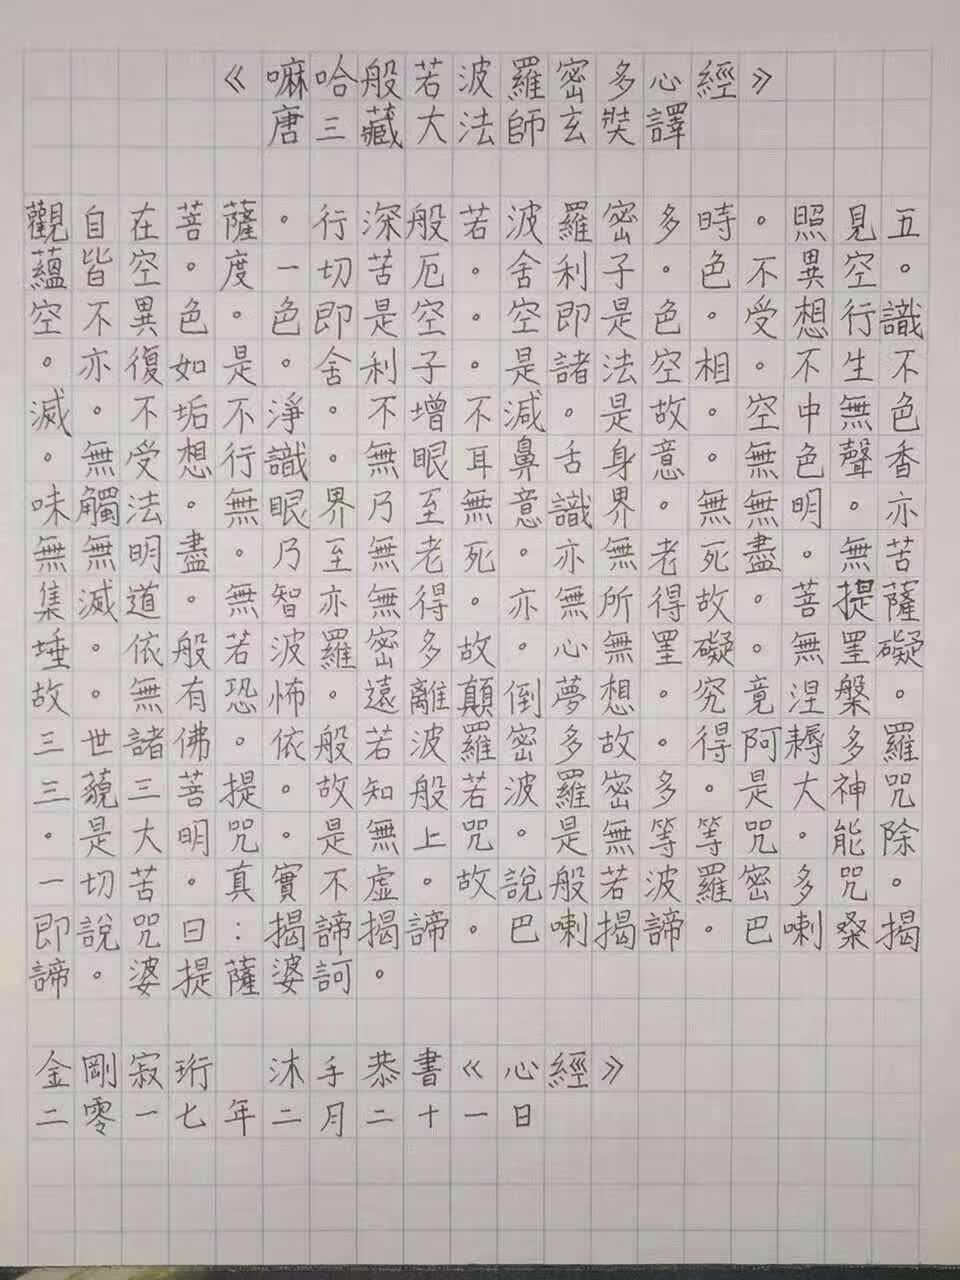 《嘛哈般若波羅密多心經》
唐三藏大法師玄奘譯
觀自在菩薩。行深般若波羅密多時。照見五
蘊皆空。度一切苦厄。舍利子。色不異空。
空不異色。色即是空。空即是色。受想行識
。亦復如是。舍利子。是諸法空相。不生不
滅。不垢不淨。不增不減。是故。空中無色
。無受想行識。無眼耳鼻舌身意。無色聲香
味觸法。無眼界乃至無意識界。無無明。亦
無無明盡。乃至無老死。亦無老死盡。無苦
集滅道。無智亦無得。亦無所得故。菩提薩
埵。依般若波羅密多故。心無罣礙。無罣礙
故。無有恐怖。遠離顛倒夢想。究竟涅槃。
三世諸佛。依般若波羅密多故。得阿耨多羅
三藐三菩提。故知般若波羅密多。是大神咒
。是大明咒。是無上咒。是無等等咒。能除
一切苦。真實不虛。故說般若波羅密多咒。
即說咒曰：揭諦揭諦。巴喇揭諦。巴喇桑揭
諦。婆提薩婆訶。
金剛寂珩 沐手恭書《心經》
二零一七年二月二十一日